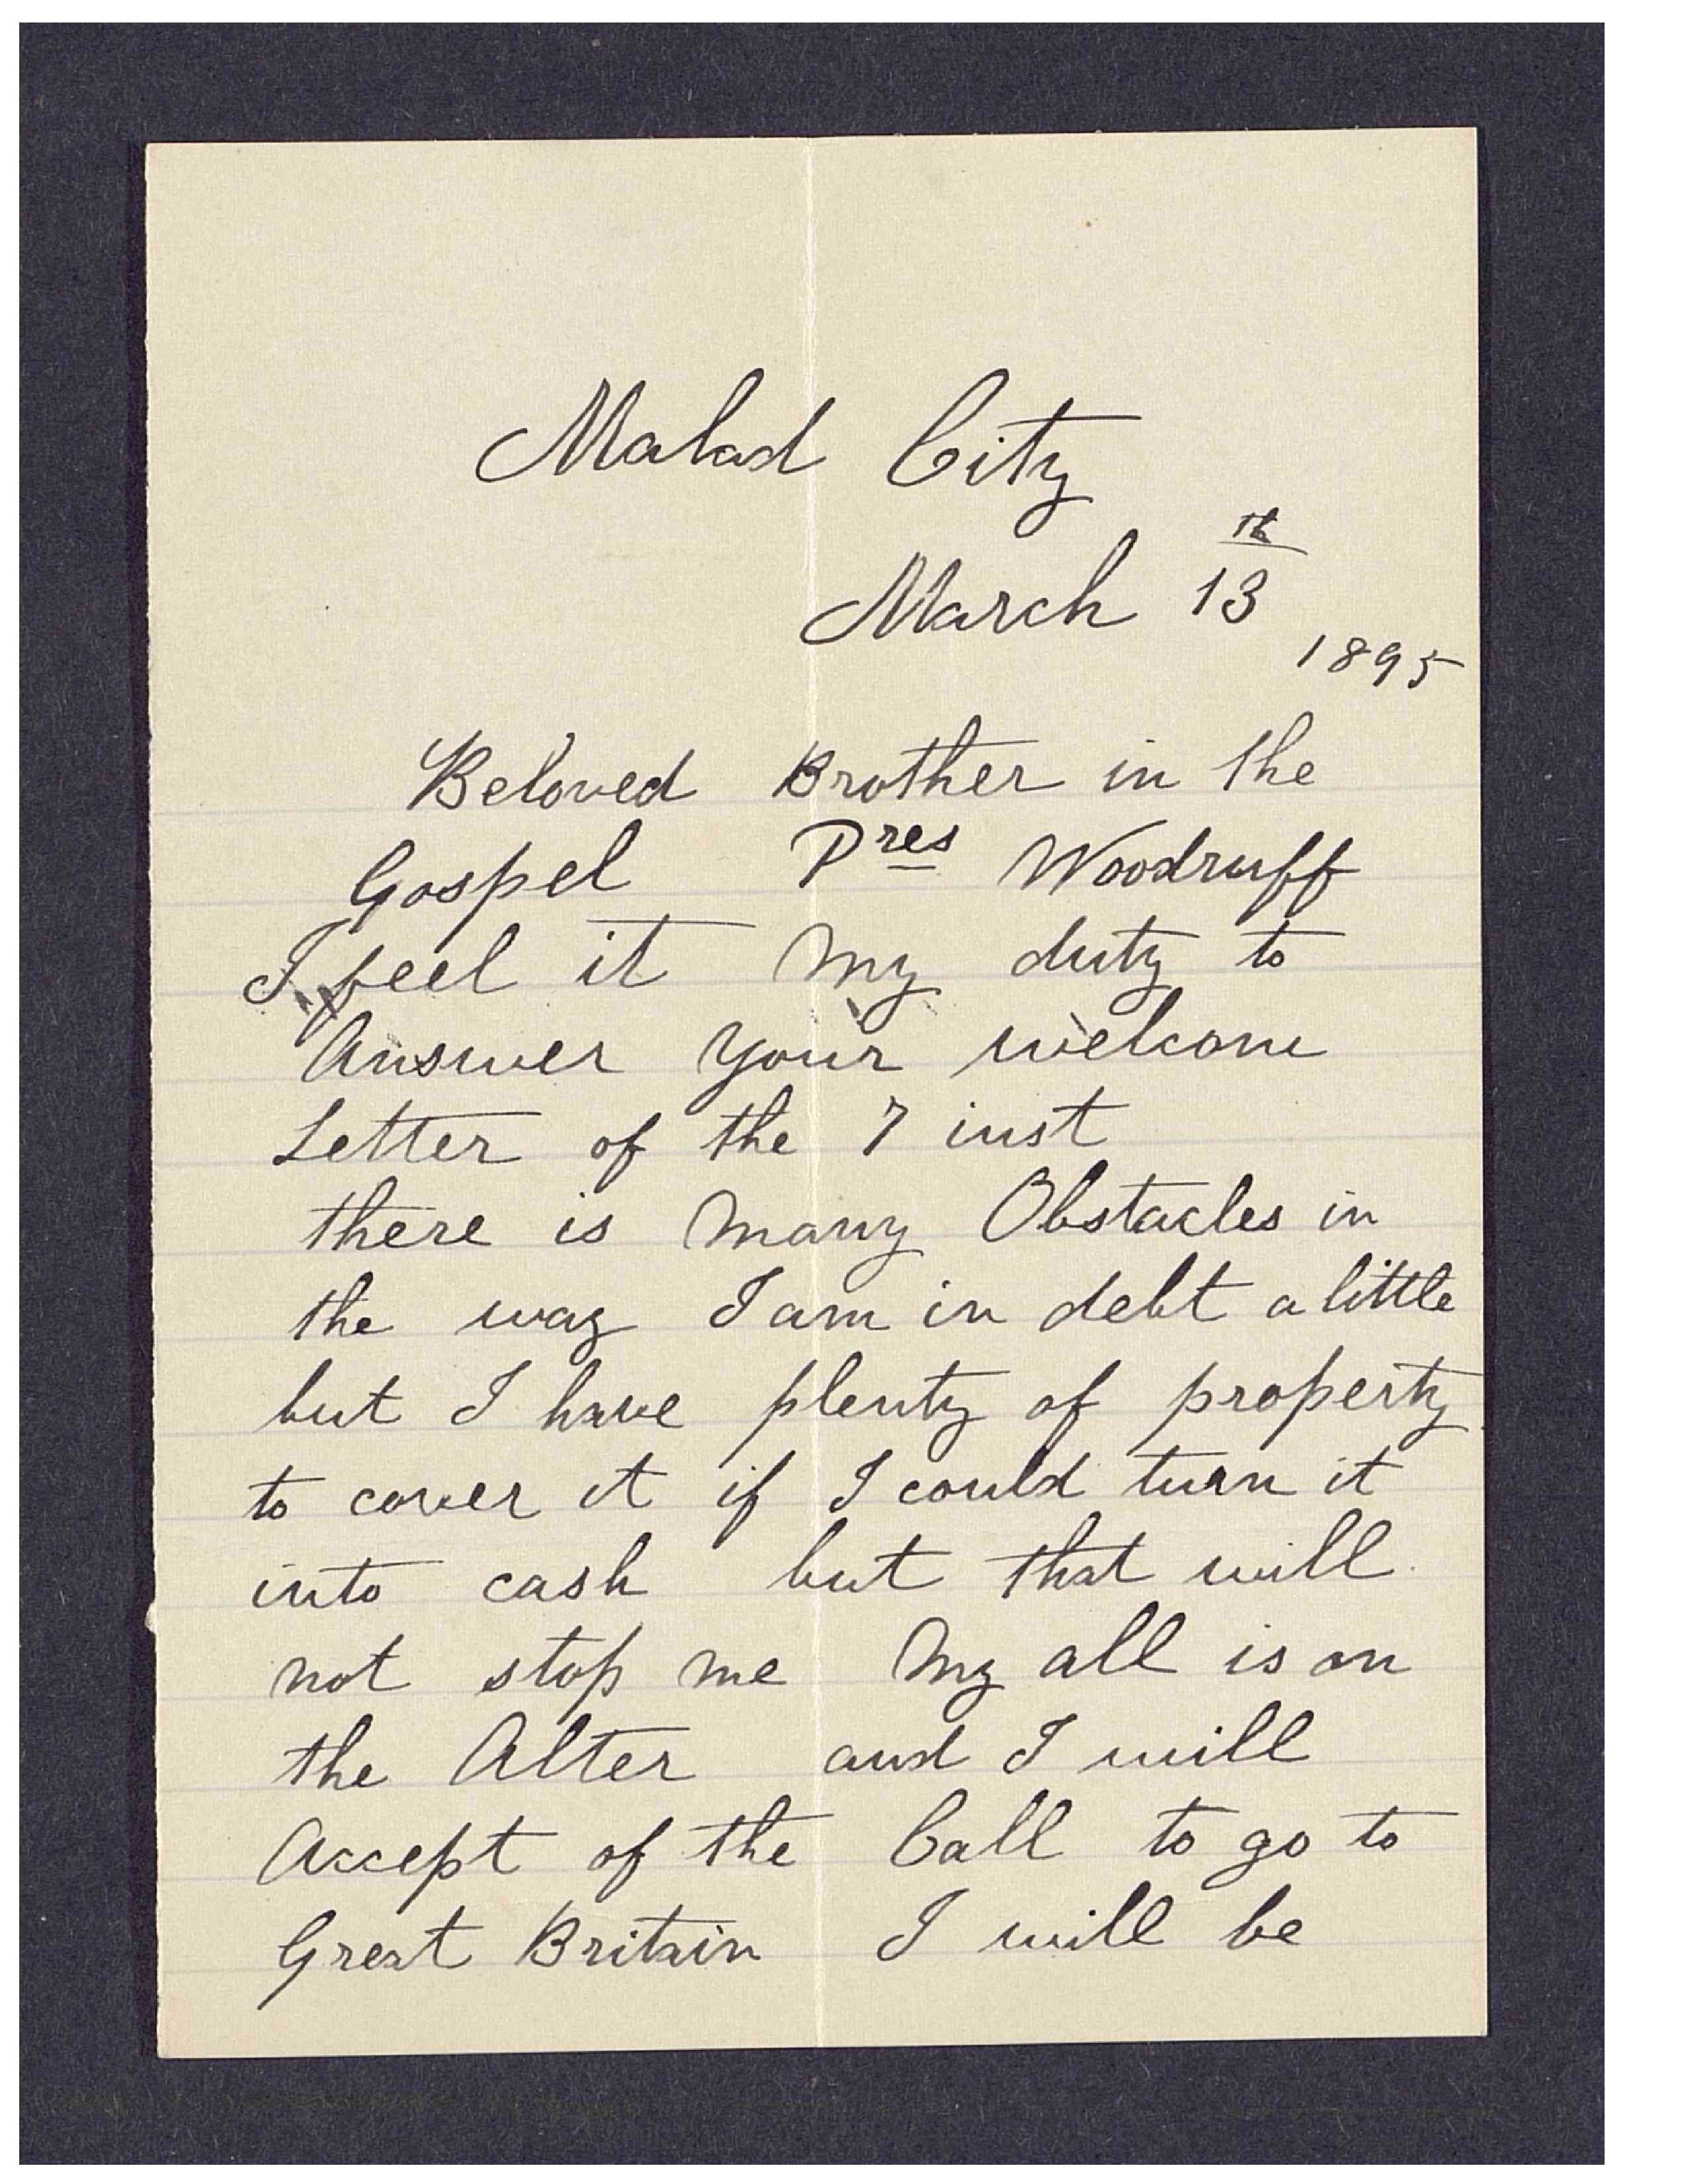 Malad City
March 13th
1895
Beloved Brother in the
Gospel Pres Woodruff
I feel it My duty to
Answer your welcome
Letter of the 7 inst
there is Many Obstacles in
the way I am in debt a little
but I have plenty of property
to cover it if I could turn it
into cash but that will
not stop me My all is on
the Alter and I will
Accept of the Call to go to
Great Britain I will be